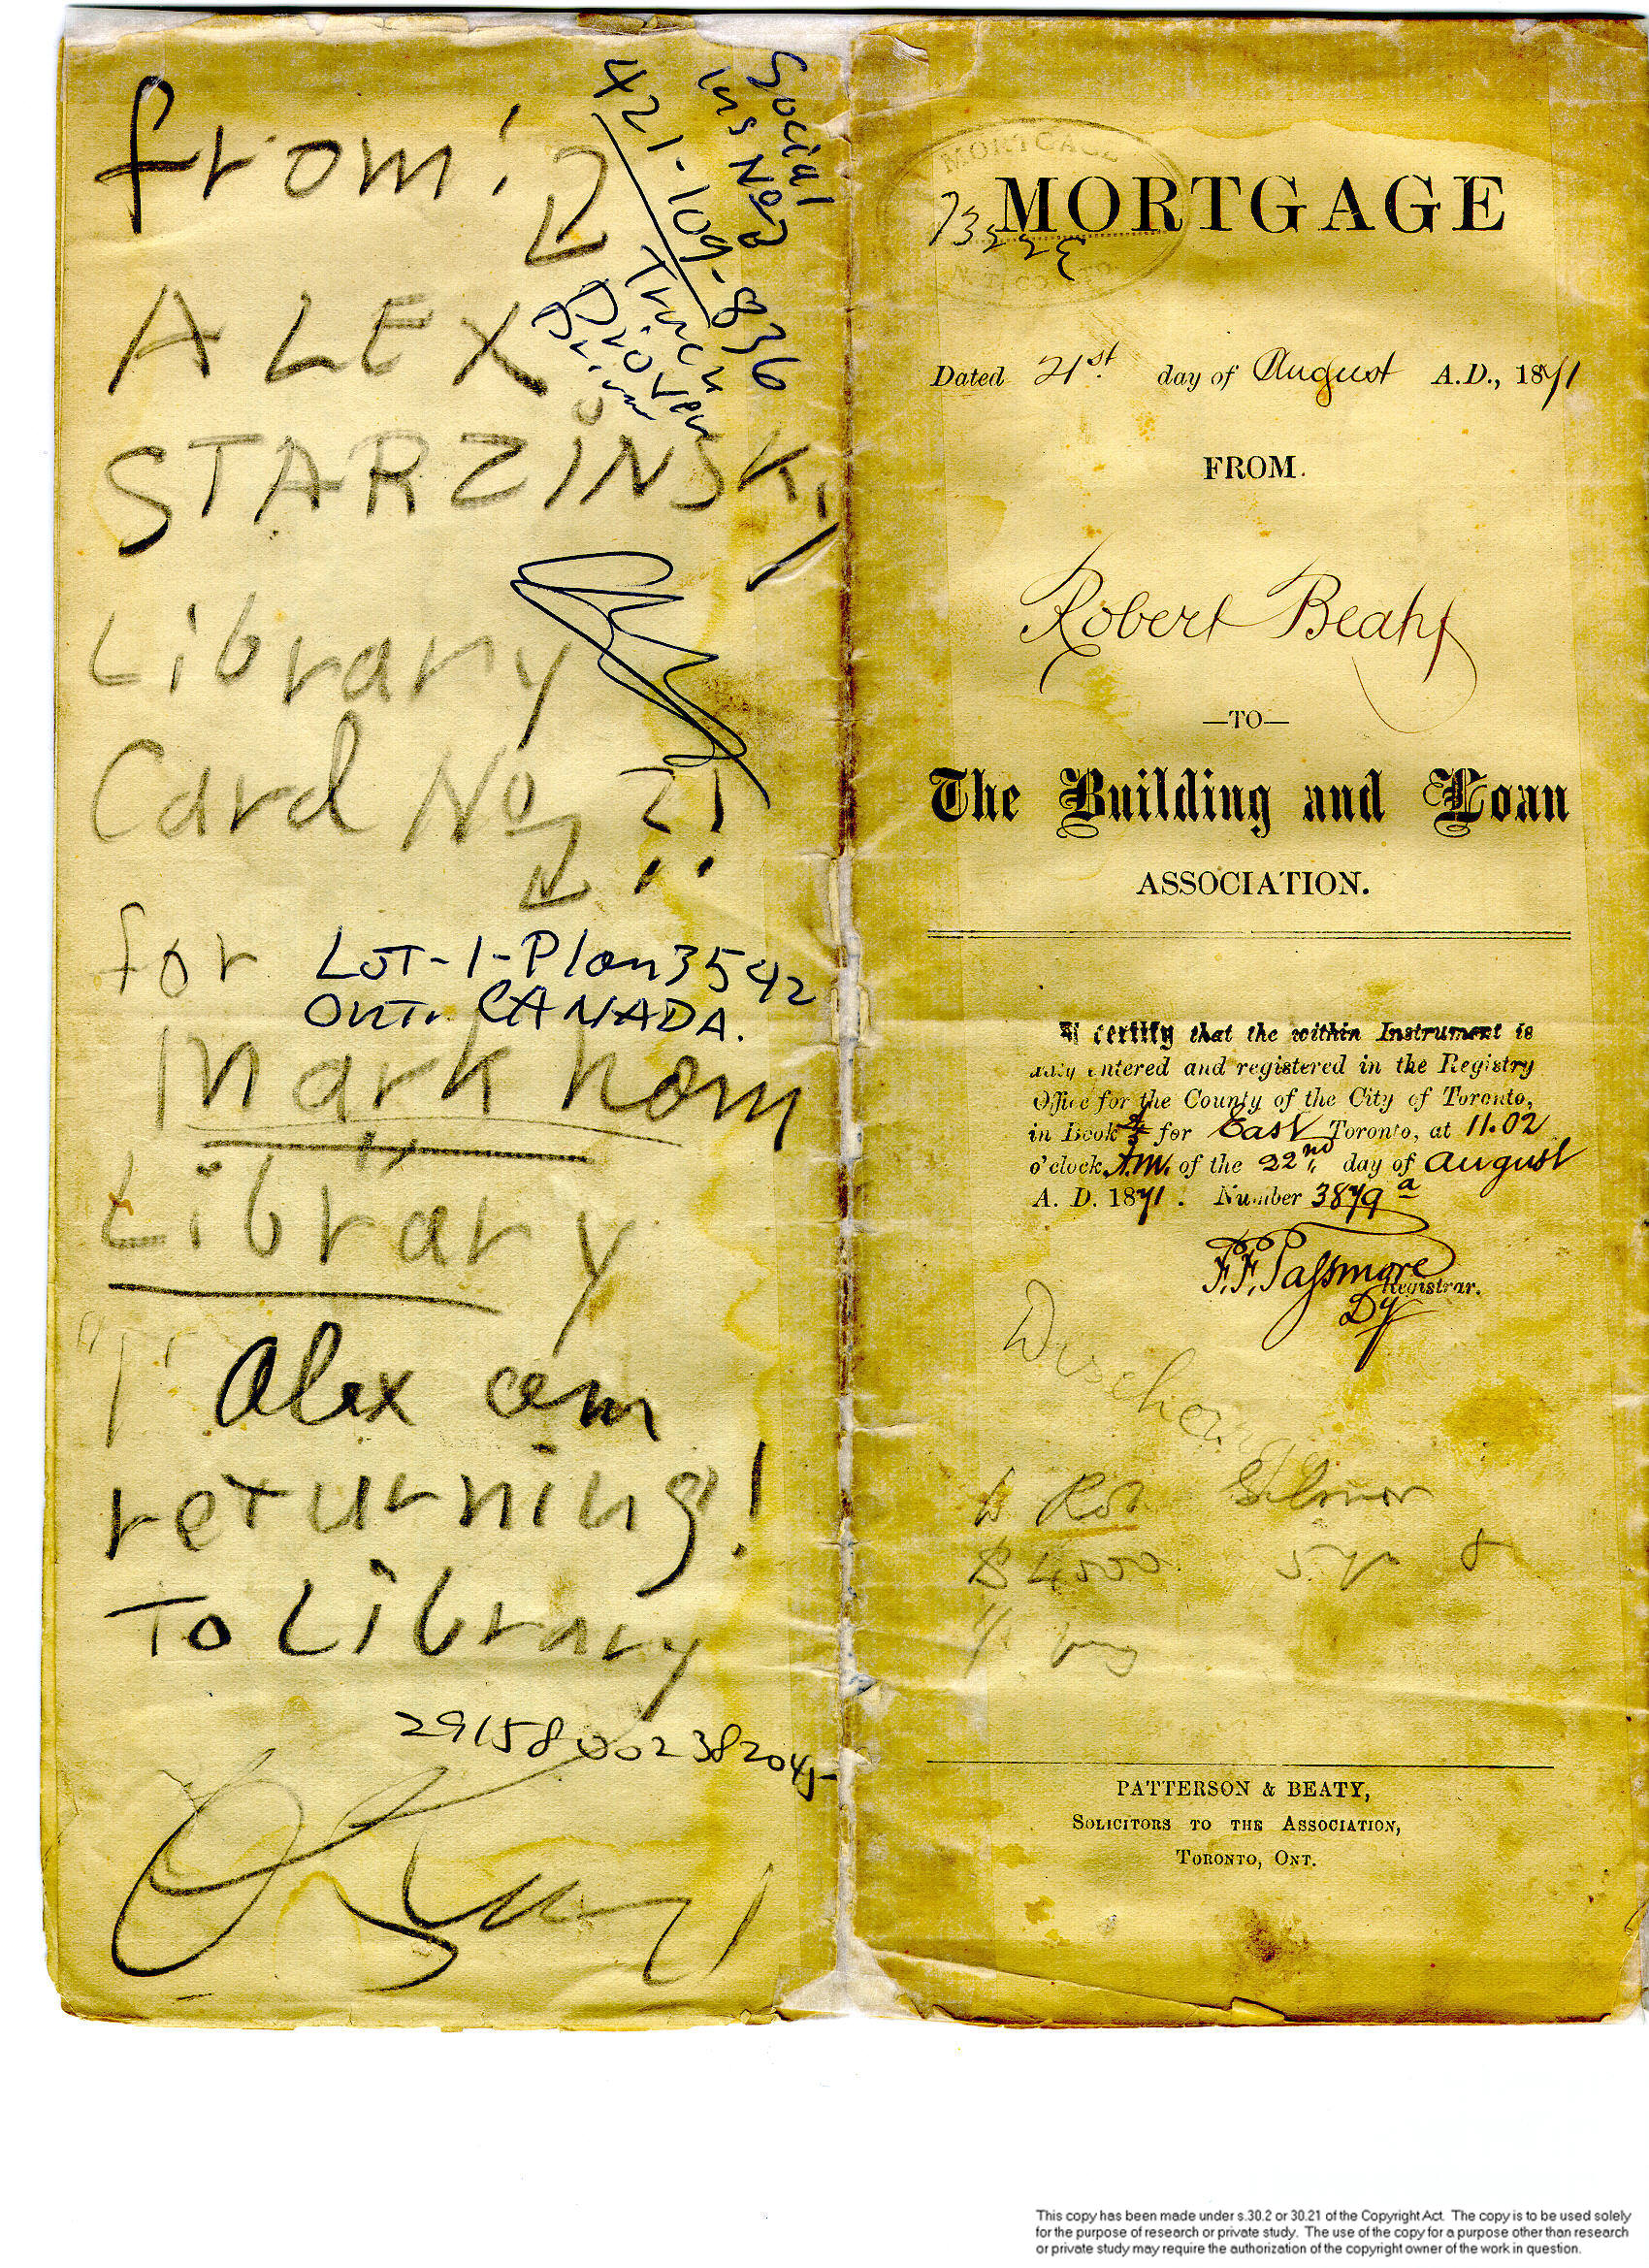 from:
ALEX
STARZINSKY
Library
Card No ?!
for LOT-1-Plan 3542
ONT. CANADA.
Markham
Library
"I" Alex am
returning!
To Library
29158002382045
Social
Ins No
421-109-836
Truck
MORTGAGE
MORTGAGE
Dated 21st. day of August A.D., 1871
FROM.
Robert Beaty
—TO—
The Building and Loan
ASSOCIATION.
I certify that the within Instrument is
duly entered and registered in the Registry
Office for the County of the City of Toronto,
in Book for East Toronto, at 11.02
o'clock A.M. of the 22nd day of August
A. D. 1871. Number 3879 a
F.F. Passmore
Registrar.
Dy
$4500
PATTERSON & BEATY,
SOLICITORS TO THE ASSOCIATION,
TORONTO, ONT.
This copy has been made under s.30.2 or 30.21 of the Copyright Act. The copy is to be used solely
for the purpose of research or private study. The use of the copy for a purpose other than research
or private study may require the authorization of the copyright owner of the work in question.